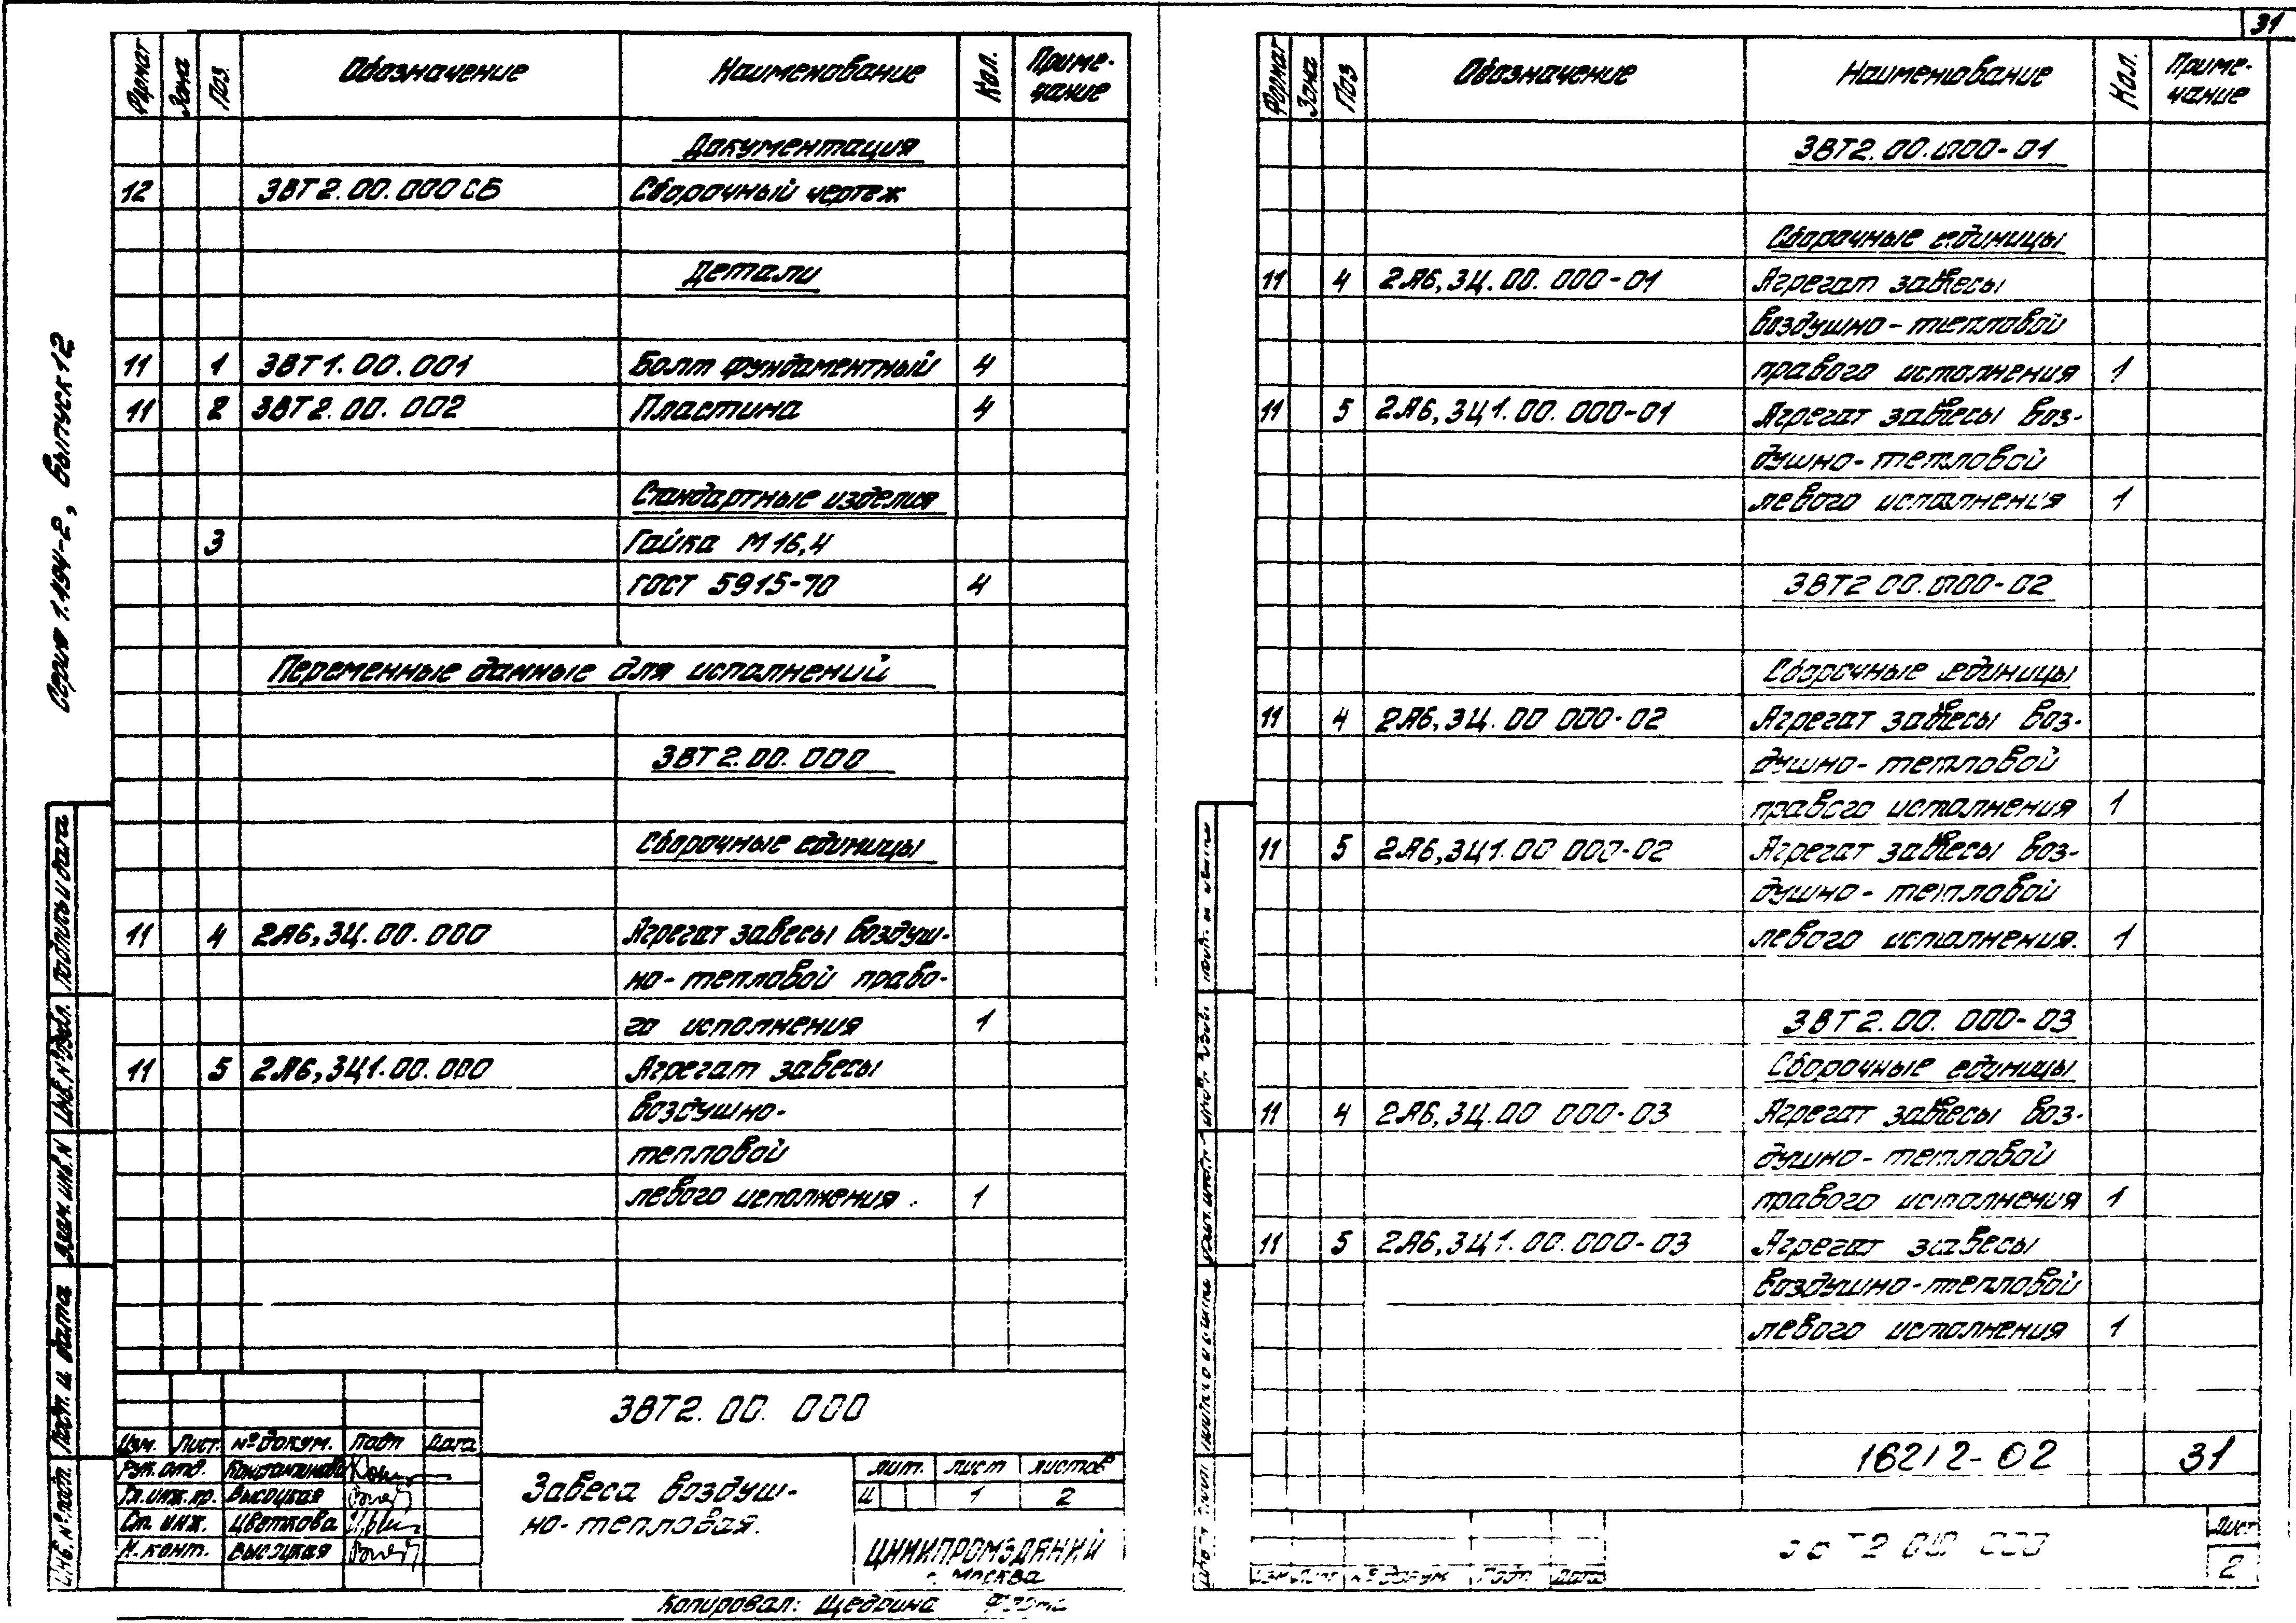 31
Серия 1.494-2, Выпуск 12
Формат Зона Поз. Обозначение Наименование Кол. Приме-
чание
Документация
12 ЗВТ2.00.000СБ Сборочный чертеж
Детали
11 1 ЗВТ1.00.001 Болт фундаментный 4
11 2 ЗВТ2.00.002 Пластина 4
Стандартные изделия
3 Гайка М16,4
ГОСТ 5915-70 4
Переменные данные для исполнений
ЗВТ2.00.000
Сборочные единицы
11 4 2А6,3Ц.00.000 Агрегат завесы воздуш-
но-тепловой право-
го исполнения 1
11 5 2А6,3Ц1.00.000 Агрегат завесы
воздушно-
тепловой
левого исполнения. 1
Инв.№подл. Подп. и дата Взам.инв.N Инв.№дубл. Подпись и дата
ЗВТ2.00.000
Изм. Лист. №докум. Подп Дата
Рук.отд. Константинова
Гл.инж.пр. Высоцкая
Ст. инж. Цветкова
Н.конт. Высоцкая
Завеса воздуш-
но-тепловая.
Лит. Лист Листов
И 1 2
ЦНИИПРОМЗДАНИЙ
г. Москва
Копировал: Щедрина
Формат Зона Поз Обозначение Наименование Кол. Приме-
чание
ЗВТ2.00.000-01
Сборочные единицы
11 4 2А6,3Ц.00.000-01 Агрегат завесы
воздушно-тепловой
правого исполнения 1
11 5 2А6,3Ц1.00.000-01 Агрегат завесы воз-
душно-тепловой
левого исполнения 1
ЗВТ2 00.000-02
Сборочные единицы
11 4 2А6,3Ц.00 000-02 Агрегат завесы воз-
душно-тепловой
правого исполнения 1
11 5 2А6,3Ц1.00 000-02 Агрегат завесы воз-
душно-тепловой
левого исполнения. 1
ЗВТ2.00.000-03
Сборочные единицы
11 4 2А6,3Ц.00 000-03 Агрегат завесы воз-
душно-тепловой
правого исполнения 1
11 5 2А6,3Ц1.00.000-03 Агрегат завесы
воздушно-тепловой
левого исполнения 1
16212-02 31
Лист
2
№докум Подп Дата